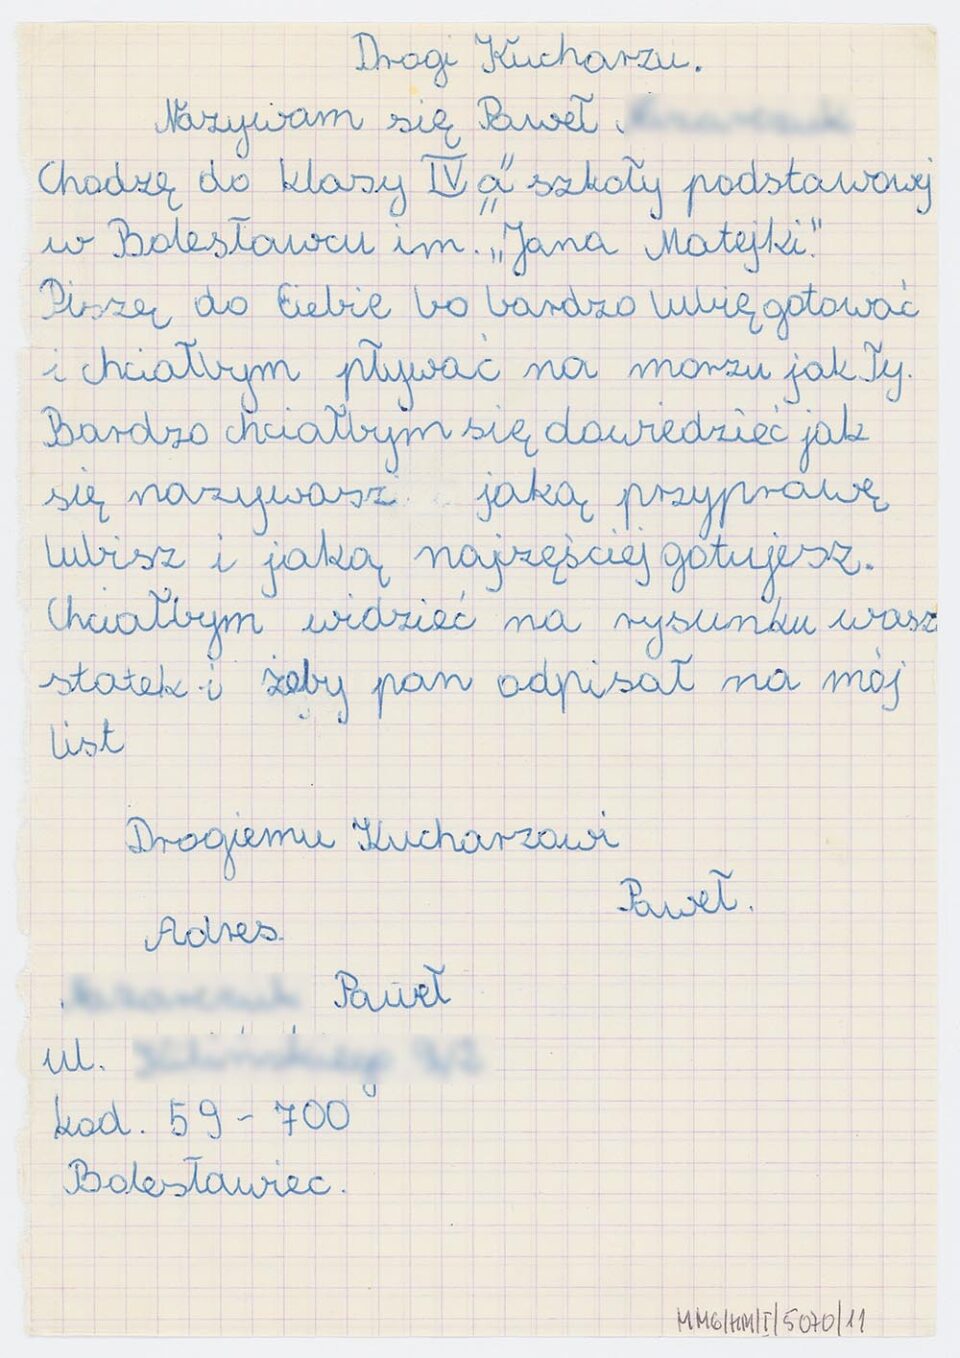 Drogi Kucharzu.
Nazywam się Paweł
Chodzę do klasy IV „a” szkoły podstawowej
w Bolesławcu im. „Jana Matejki”.
Piszę do Ciebie bo bardzo lubię gotować
i chciałbym pływać na morzu jak Ty.
Bardzo chciałbym się dowiedzieć jak
się nazywasz jaką przyprawę
lubisz i jaką najczęściej gotujesz.
Chciałbym widzieć na rysunku wasz
statek i żeby pan odpisał na mój
list
Drogiemu Kucharzowi
Paweł.
Adres
Paweł
ul.
kod. 59-700
Bolesławiec.
MMG/HM/I/5070/11